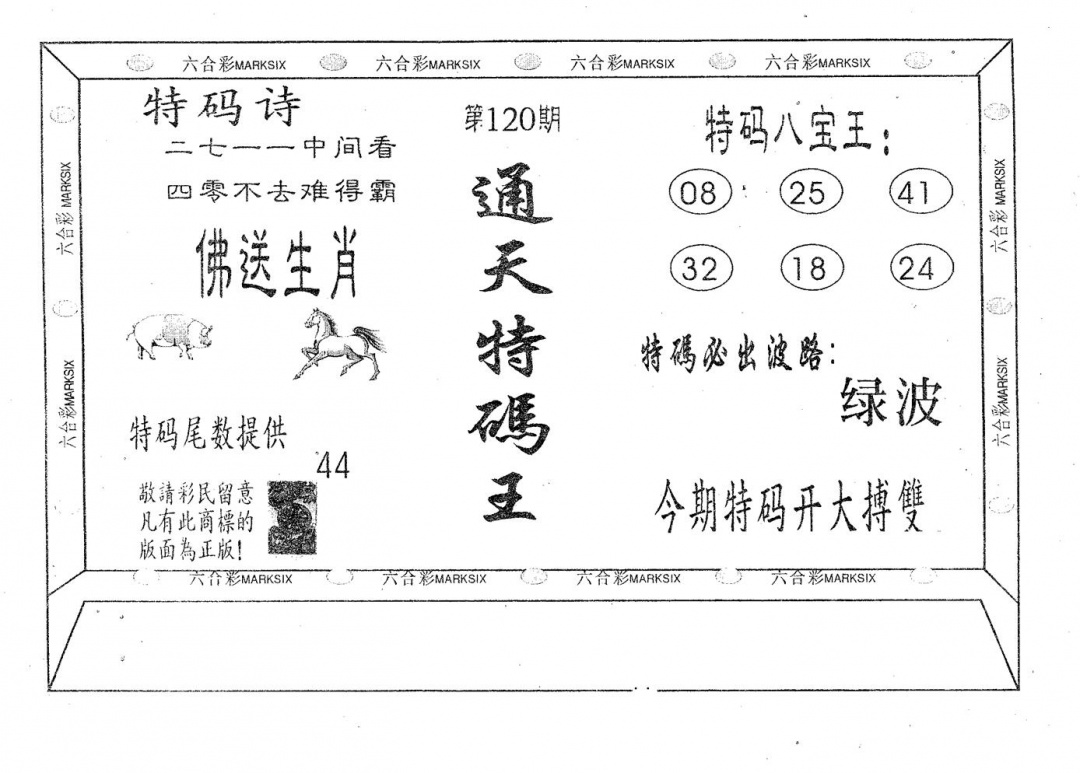 六合彩MARKSIX 六合彩MARKSIX 六合彩MARKSIX 六合彩MARKSIX
六合彩 MARKSIX
六合彩MARKSIX
特码诗
二七一一中间看
四零不去难得霸
佛送生肖
特码尾数提供
44
敬請彩民留意
凡有此商標的
版面為正版!
第120期
通天特碼王
特码八宝王:
08 25 41
32 18 24
特碼必出波路:
绿波
今期特码开大搏雙
六合彩 MARKSIX
六合彩MARKSIX
六合彩MARKSIX 六合彩MARKSIX 六合彩MARKSIX 六合彩MARKSIX